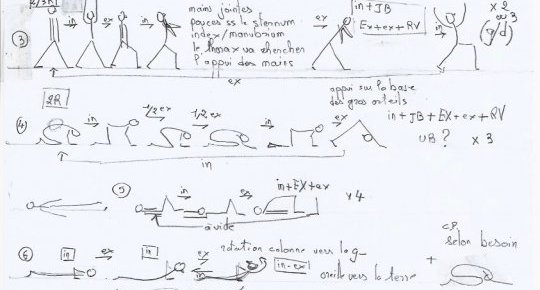 mains jointes
pouces ss le sternum
index/manubrium
le thorax va chercher
l'appui des mains
in + JB
Ex + ex + RV
x 2
ou 3
(g/d)
3
in
ex
in
ex
in
ex
2R
4
in
1/2 ex
1/2 ex
in
ex
in
appui sur la base
des gros orteils
in + JB + EX + ex + RV
UB ? x 3
5
in
ex
in + EX + ex
x 4
à vide
6
in
ex
in
ex
rotation colonne vers la g
in-ex
oreille vers la terre
+
CP
selon besoin